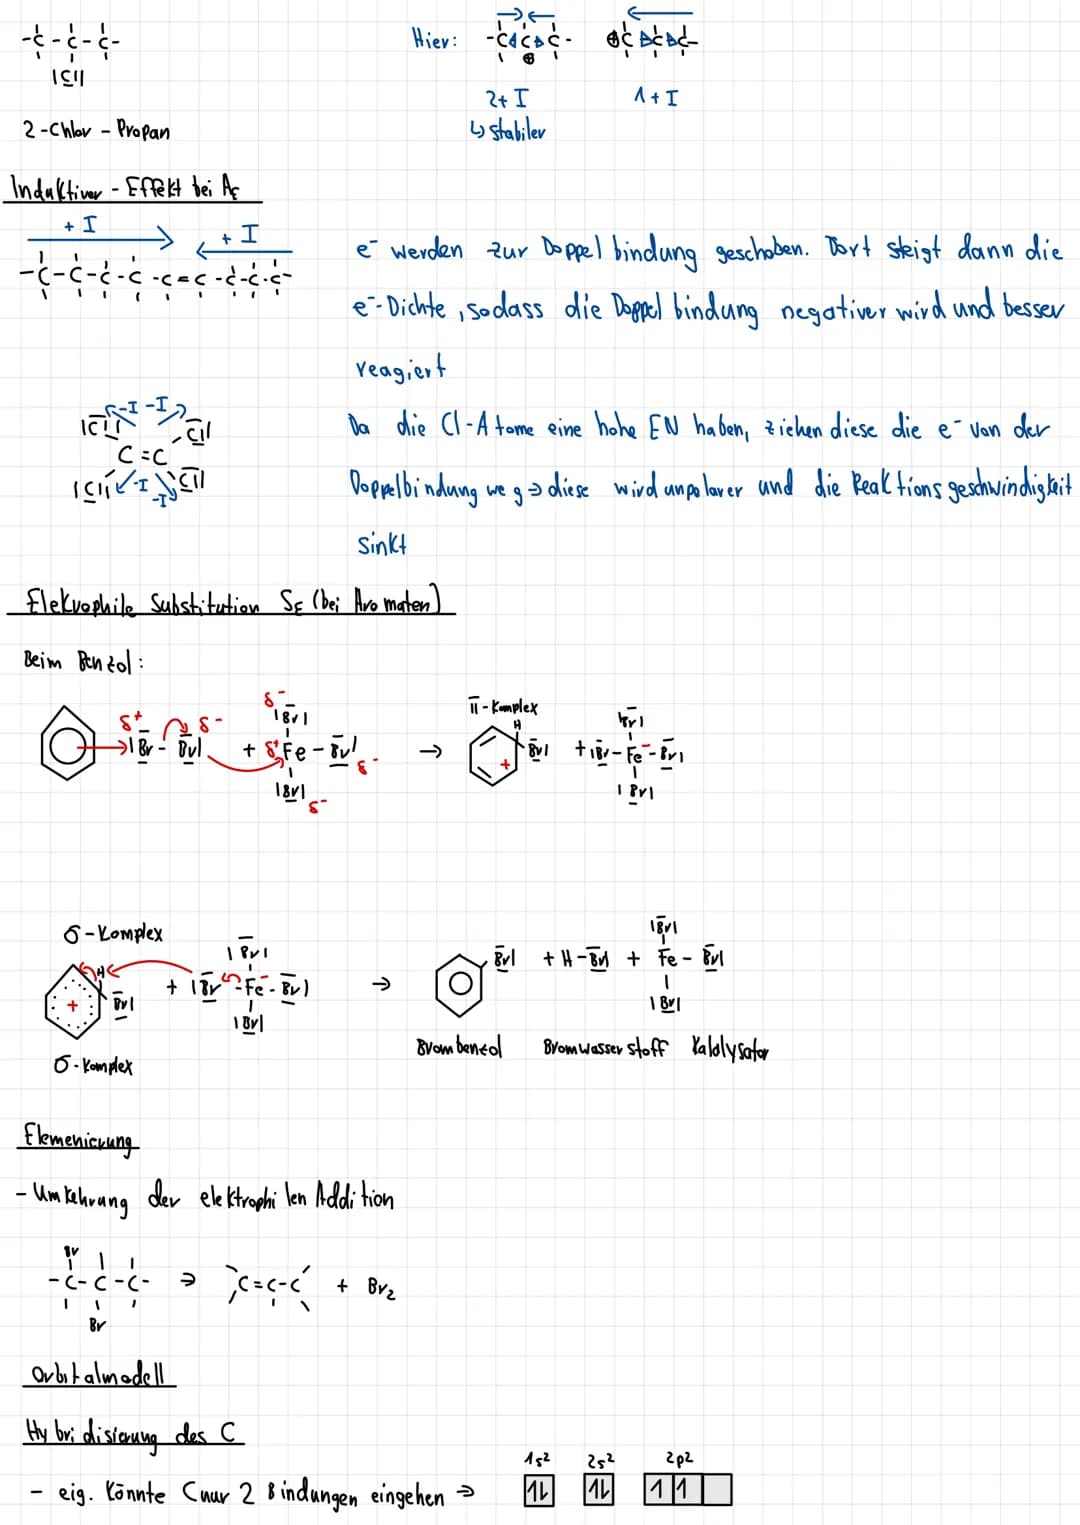 -C-C-C-
|Cl|
2-Chlor-Propan
Hier: -C C C- ⊕C C C-
⊕
2+I 1+I
↳ stabiler
Induktiver-Effekt bei AE
+I +I
-C-C-C-C-C=C-C-C-C-
e⁻ werden zur Doppelbindung geschoben. Dort steigt dann die
e⁻-Dichte, sodass die Doppelbindung negativer wird und besser
reagiert
-I -I
|Cl| Cl|
C=C
|Cl| -I -I Cl|
Da die Cl-Atome eine hohe EN haben, ziehen diese die e⁻ von der
Doppelbindung weg → diese wird unpolarer und die Reaktionsgeschwindigkeit
sinkt
Elekrophile Substitution SE (bei Aromaten)
Beim Benzol:
δ⁻
|Br|
δ⁺ δ⁻
|Br-Br| + δ⁺Fe-Br| δ⁻ →
|Br|
δ⁻
π-Komplex
H
Br|
+
|Br|
+ |Br-Fe⁻-Br|
|Br|
σ-Komplex
H
+ Br|
σ-Komplex
|Br|
+ |Br-Fe⁻-Br| →
|Br|
Br| + H-Br| + Fe-Br|
|Br|
|Br|
Brombenzol Bromwasserstoff Katalysator
Elemenierung
- Umkehrung der elektrophilen Addition
Br
-C-C-C- → C=C-C + Br₂
Br
Orbitalmodell
Hybridisierung des C
1s² 2s² 2p²
- eig. könnte C nur 2 Bindungen eingehen → 1↓ 1↓ 1 1